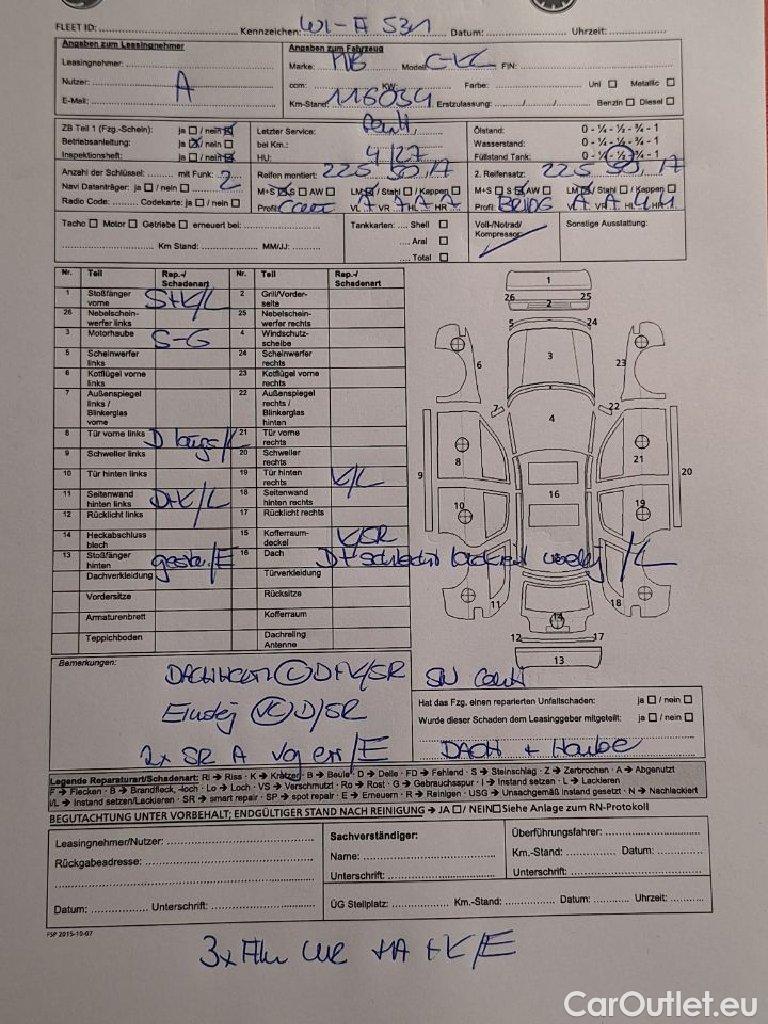 FLEET ID: Kennzeichen: WI-A 531 Datum: Uhrzeit:
Angaben zum Leasingnehmer
Leasingnehmer:
Nutzer: A
E-Mail:
Angaben zum Fahrzeug
Marke: MB Modell: C-KL FIN:
ccm: KW: Farbe: Uni Metallic
Km-Stand: 116034 Erstzulassung: Benzin Diesel
ZB Teil 1 (Fzg.-Schein): ja / nein
Betriebsanleitung: ja / nein
Inspektionsheft: ja / nein
Letzter Service:
bei Km.:
HU: 4/27
Ölstand: 0 - ¼ - ½ - ¾ - 1
Wasserstand: 0 - ¼ - ½ - ¾ - 1
Füllstand Tank: 0 - ¼ - ½ - ¾ - 1
Anzahl der Schlüssel: mit Funk: 2
Navi Datenträger: ja / nein
Radio Code: Codekarte: ja / nein
Reifen montiert: 225 50 17
M+S S AW LM / Stahl / Kappen
Profil: Conti VL 7 VR 7 HL 7 HR 7
2. Reifensatz: 225 50 17
M+S S AW LM / Stahl / Kappen
Profil: BRIDG VL VR HL 4 HR 4
Tacho Motor Getriebe erneuert bei:
Km Stand: MM/JJ:
Tankkarten: Shell
Aral
Total
Voll-/Notrad/
Kompressor
Sonstige Ausstattung:
Nr. Teil Rep.-/ Schadenart Nr. Teil Rep.-/ Schadenart
1 Stoßfänger vorne S+K/L 2 Grill/Vorderseite
26 Nebelscheinwerfer links 25 Nebelscheinwerfer rechts
3 Motorhaube S-G 4 Windschutzscheibe
5 Scheinwerfer links 24 Scheinwerfer rechts
6 Kotflügel vorne links 23 Kotflügel vorne rechts
7 Außenspiegel links / Blinkerglas vorne 22 Außenspiegel rechts / Blinkerglas hinten
8 Tür vorne links 21 Tür vorne rechts
9 Schweller links 20 Schweller rechts
10 Tür hinten links 19 Tür hinten rechts K/L
11 Seitenwand hinten links D+K/L 18 Seitenwand hinten rechts
12 Rücklicht links 17 Rücklicht rechts
14 Heckabschlussblech 15 Kofferraumdeckel K/SR
13 Stoßfänger hinten 16 Dach
Dachverkleidung Türverkleidung
Vordersitze Rücksitze
Armaturenbrett Kofferraum
Teppichboden Dachreling Antenne
1
26 25
2
5 24
3
6 23
7 22
4
8 21
9 20
16
10 19
11 18
15
12 17
13
Bemerkungen:
D+K/SR
Einstieg D/SR
2x SR A /E
Hat das Fzg. einen reparierten Unfallschaden: ja / nein
Wurde dieser Schaden dem Leasinggeber mitgeteilt: ja / nein
DACH + Haube
Legende Reparaturart/Schadenart: Ri → Riss · K → Kratzer · B → Beule · D → Delle · FD → Fehlend · S → Steinschlag · Z → Zerbrochen · A → Abgenutzt
F → Flecken · B → Brandfleck, -loch · Lo → Loch · VS → Verschmutzt · Ro → Rost · G → Gebrauchsspur · I → Instand setzen · L → Lackieren
I/L → Instand setzen/Lackieren · SR → smart repair · SP → spot repair · E → Erneuern · R → Reinigen · USG → Unsachgemäß Instand gesetzt · N → Nachlackiert
BEGUTACHTUNG UNTER VORBEHALT; ENDGÜLTIGER STAND NACH REINIGUNG → JA / NEIN Siehe Anlage zum RN-Protokoll
Leasingnehmer/Nutzer:
Rückgabeadresse:
Datum: Unterschrift:
Sachverständiger:
Name:
Unterschrift:
Überführungsfahrer:
Km.-Stand: Datum:
Unterschrift:
ÜG Stellplatz: Km.-Stand: Datum: Uhrzeit:
FSP 2015-10-07
3x +K/E
CarOutlet.eu